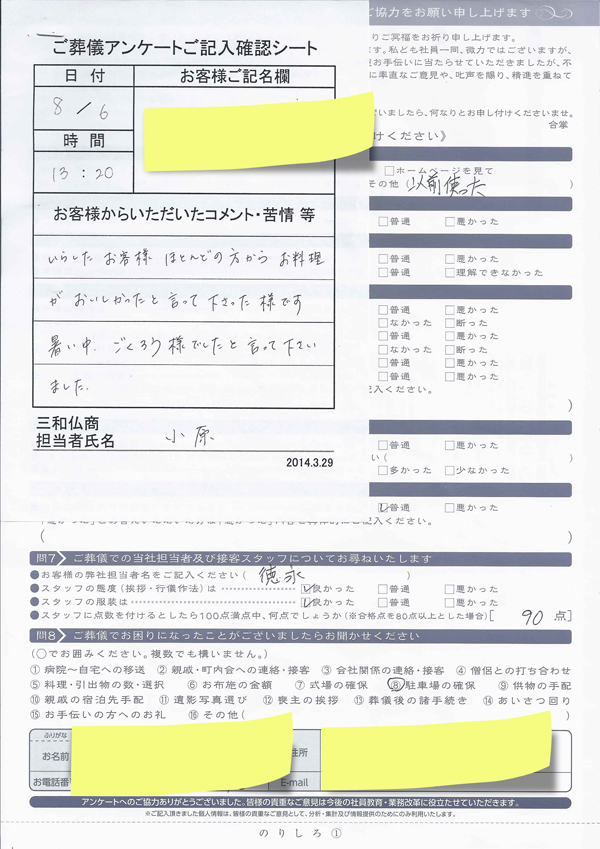 ご葬儀アンケートご記入確認シート
日付
お客様ご記名欄
8／6
時間
13：20
お客様からいただいたコメント・苦情 等
いらした お客様 ほとんどの方から お料理
が おいしかったと 言って 下さった 様です
暑い中. ごくろう様でしたと 言って下さい
ました.
三和仏商
担当者氏名
小原
2014.3.29
ご協力をお願い申し上げます
りご冥福をお祈り申し上げます。
す。私ども社員一同、微力ではございますが、
お手伝いに当たらせていただきましたが、不
に率直なご意見や、叱声を賜り、精進を重ねて
いましたら、何なりとお申し付けくださいませ。
合掌
けください》
□ホームページを見て
その他（以前使った
□普通 □悪かった
□普通 □悪かった
□普通 □理解できなかった
□普通 □悪かった
□なかった □断った
□普通 □悪かった
□なかった □断った
□普通 □悪かった
□普通 □悪かった
記入ください。
）
□普通 □悪かった
い（ ）
□多かった □少なかった
☑普通 □悪かった
記入ください。
（ ）
問7 ご葬儀での当社担当者及び接客スタッフについてお尋ねいたします
●お客様の弊社担当者名をご記入ください（ 徳永 ）
●スタッフの態度（挨拶・行儀作法）は ☑良かった □普通 □悪かった
●スタッフの服装は ☑良かった □普通 □悪かった
●スタッフに点数を付けるとしたら100点満点中、何点でしょうか（※合格点を80点以上とした場合）[ 90 点]
問8 ご葬儀でお困りになったことがございましたらお聞かせください
（○でお囲みください。複数でも構いません。）
①病院〜自宅への移送 ②親戚・町内会への連絡・接客 ③会社関係の連絡・接客 ④僧侶との打ち合わせ
⑤料理・引出物の数・選択 ⑥お布施の金額 ⑦式場の確保 ⑧駐車場の確保 ⑨供物の手配
⑩親戚の宿泊先手配 ⑪遺影写真選び ⑫喪主の挨拶 ⑬葬儀後の諸手続き ⑭あいさつ回り
⑮お手伝いの方へのお礼 ⑯その他（ ）
ふりがな
お名前
住所
お電話番
E-mail
アンケートへのご協力ありがとうございました。皆様の貴重なご意見は今後の社員教育・業務改革に役立たせていただきます。
※ご記入頂きました個人情報は、皆様の貴重なご意見として、分析・集計及び情報提供のためにのみ利用いたします。
のりしろ①